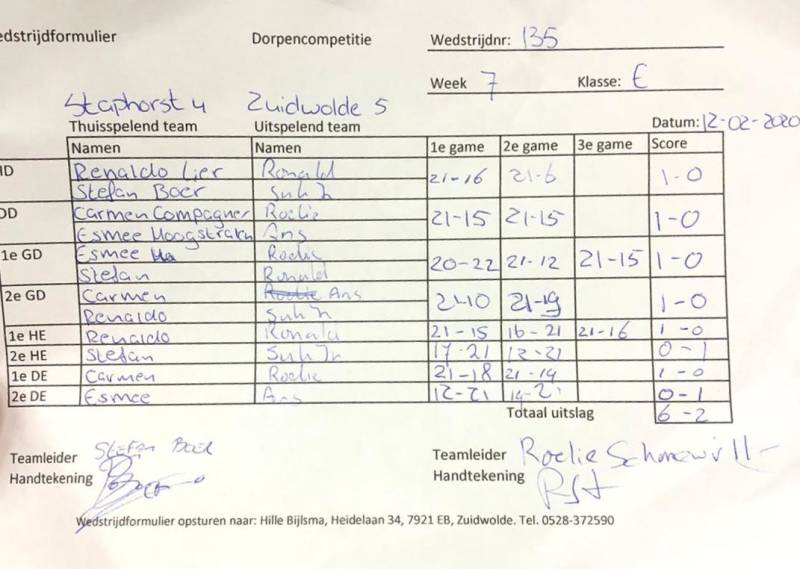 edstrijdformulier Dorpencompetitie Wedstrijdnr: 135
Week 7 Klasse: E
Staphorst 4 Zuidwolde 5
Thuisspelend team Uitspelend team Datum: 12-02-2020
Namen Namen 1e game 2e game 3e game Score
HD Renaldo Lier Ronald 21-16 21-6 1-0
Stefan Boer
DD Carmen Compagner Roelie 21-15 21-15 1-0
Esmee Hoogstraten Ans
1e GD Esmee Roelie 20-22 21-12 21-15 1-0
Stefan Ronald
2e GD Carmen Roelie Ans 21-10 21-19 1-0
Renaldo
1e HE Renaldo Ronald 21-15 16-21 21-16 1-0
2e HE Stefan 17-21 12-21 0-1
1e DE Carmen Roelie 21-18 21-19 1-0
2e DE Esmee Ans 12-21 0-1
Totaal uitslag 6-2
Teamleider Stefan Boer Teamleider Roelie
Handtekening Handtekening
Wedstrijdformulier opsturen naar: Hille Bijlsma, Heidelaan 34, 7921 EB, Zuidwolde. Tel. 0528-372590